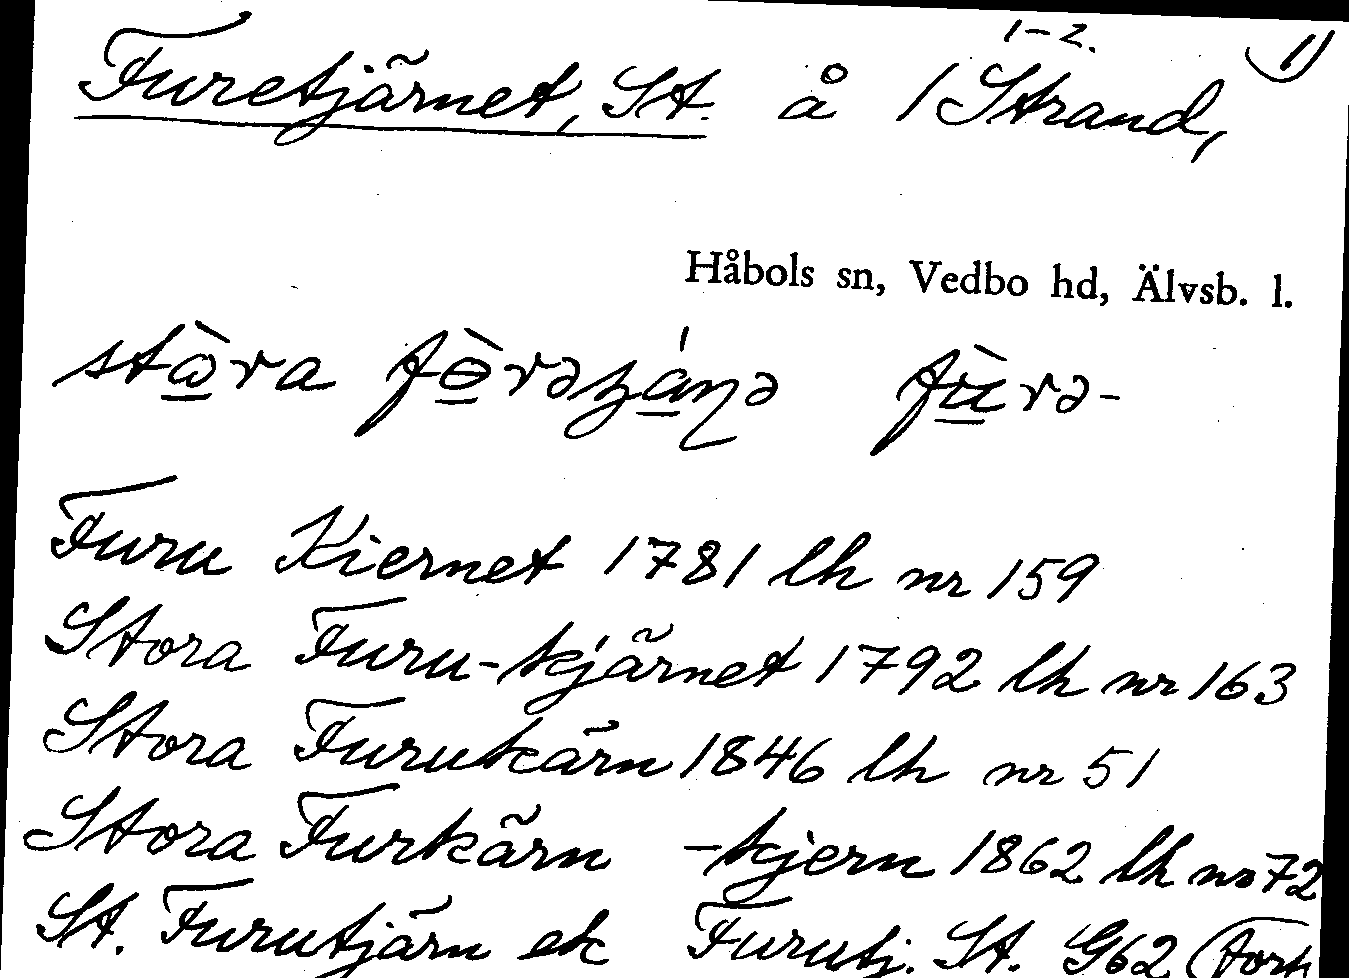 1-2. 1)
Furetjärnet, St. å 1 Strand,
Håbols sn, Vedbo hd, Älvsb. l.
Furu Kiernet 1781 lh nr 159
Stora Furu-kjärnet 1792 lh nr 163
Stora Furukärn 1846 lh nr 51
Stora Furkärn -kjern 1862 lh nr 72
St. Furutjärn ek Furutj. St. G62